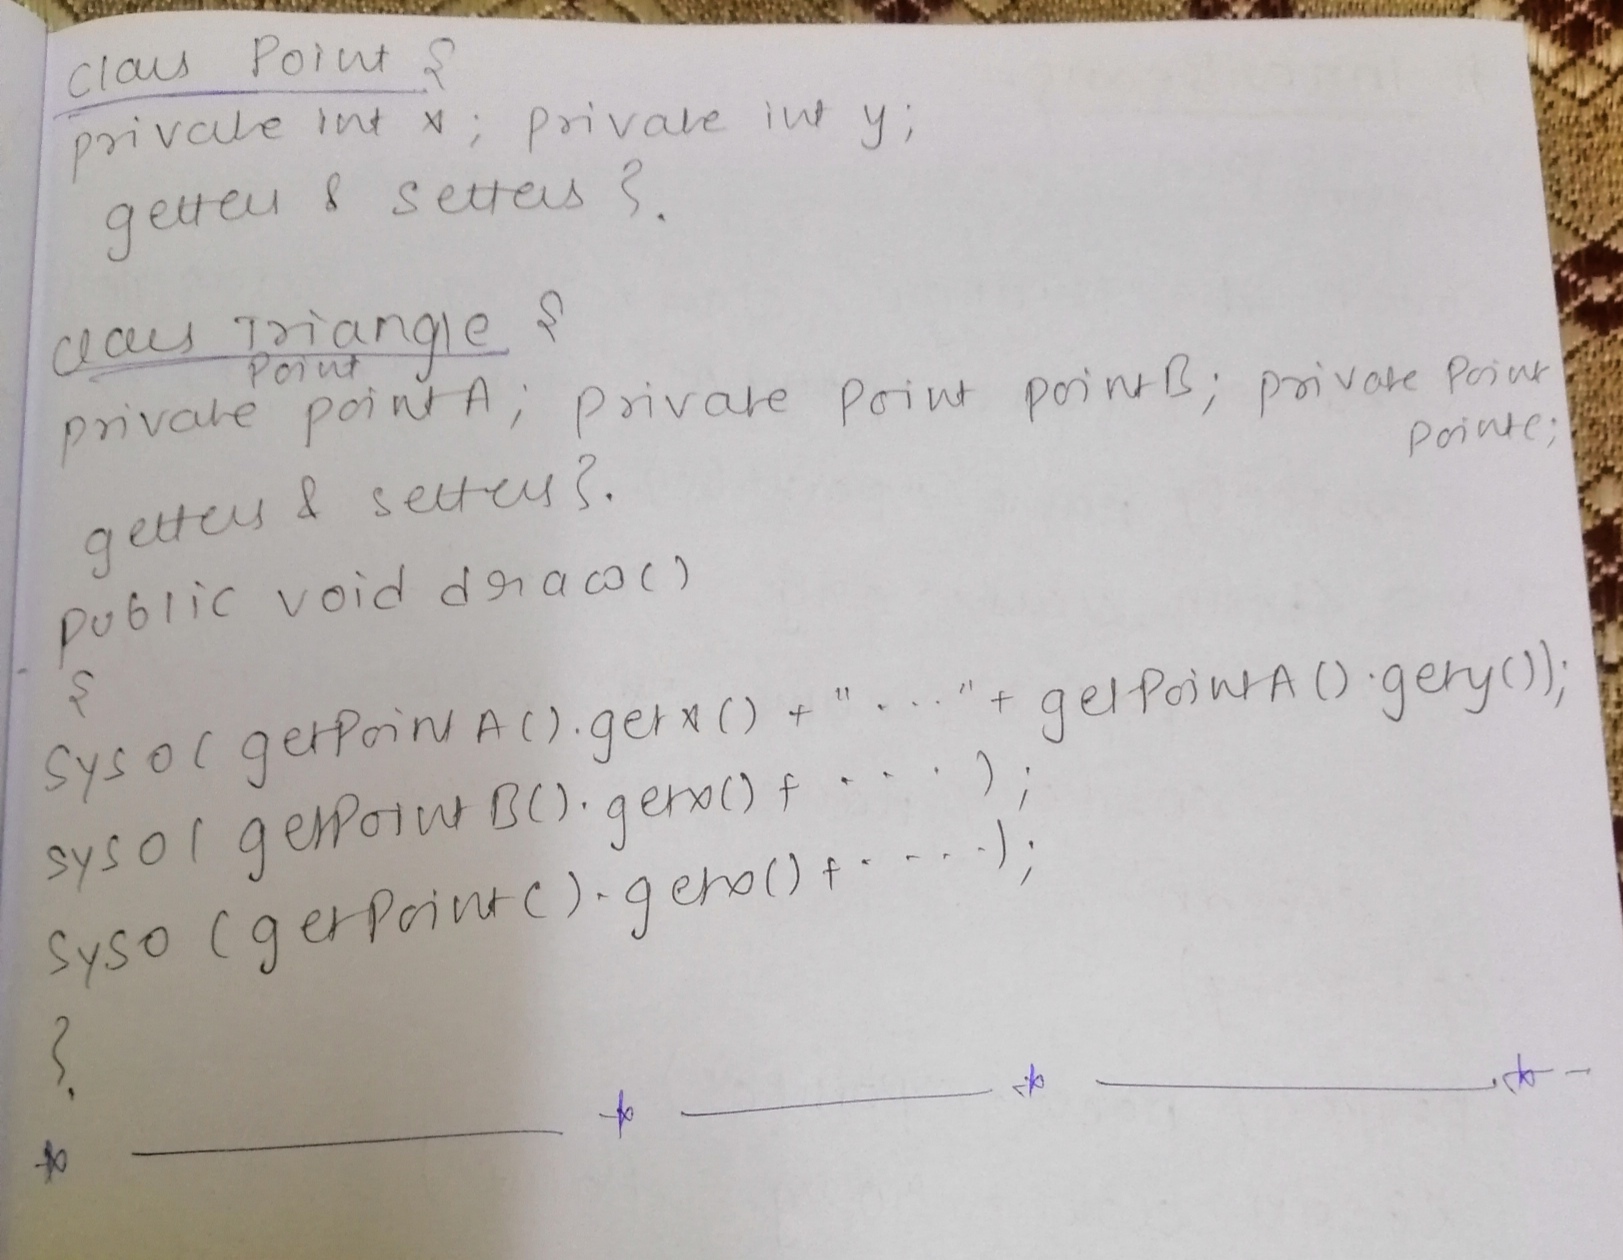 class Point {
private int x; private int y;
getters & setters }.
class Triangle {
Point
private pointA; private Point pointB; private Point
pointC;
getters & setters }.
public void draw()
{
syso( getPointA().getx() + "...." + getPointA().gety());
syso( getPointB().getx() + ....);
syso (getPointC).getx() + .....);
}.